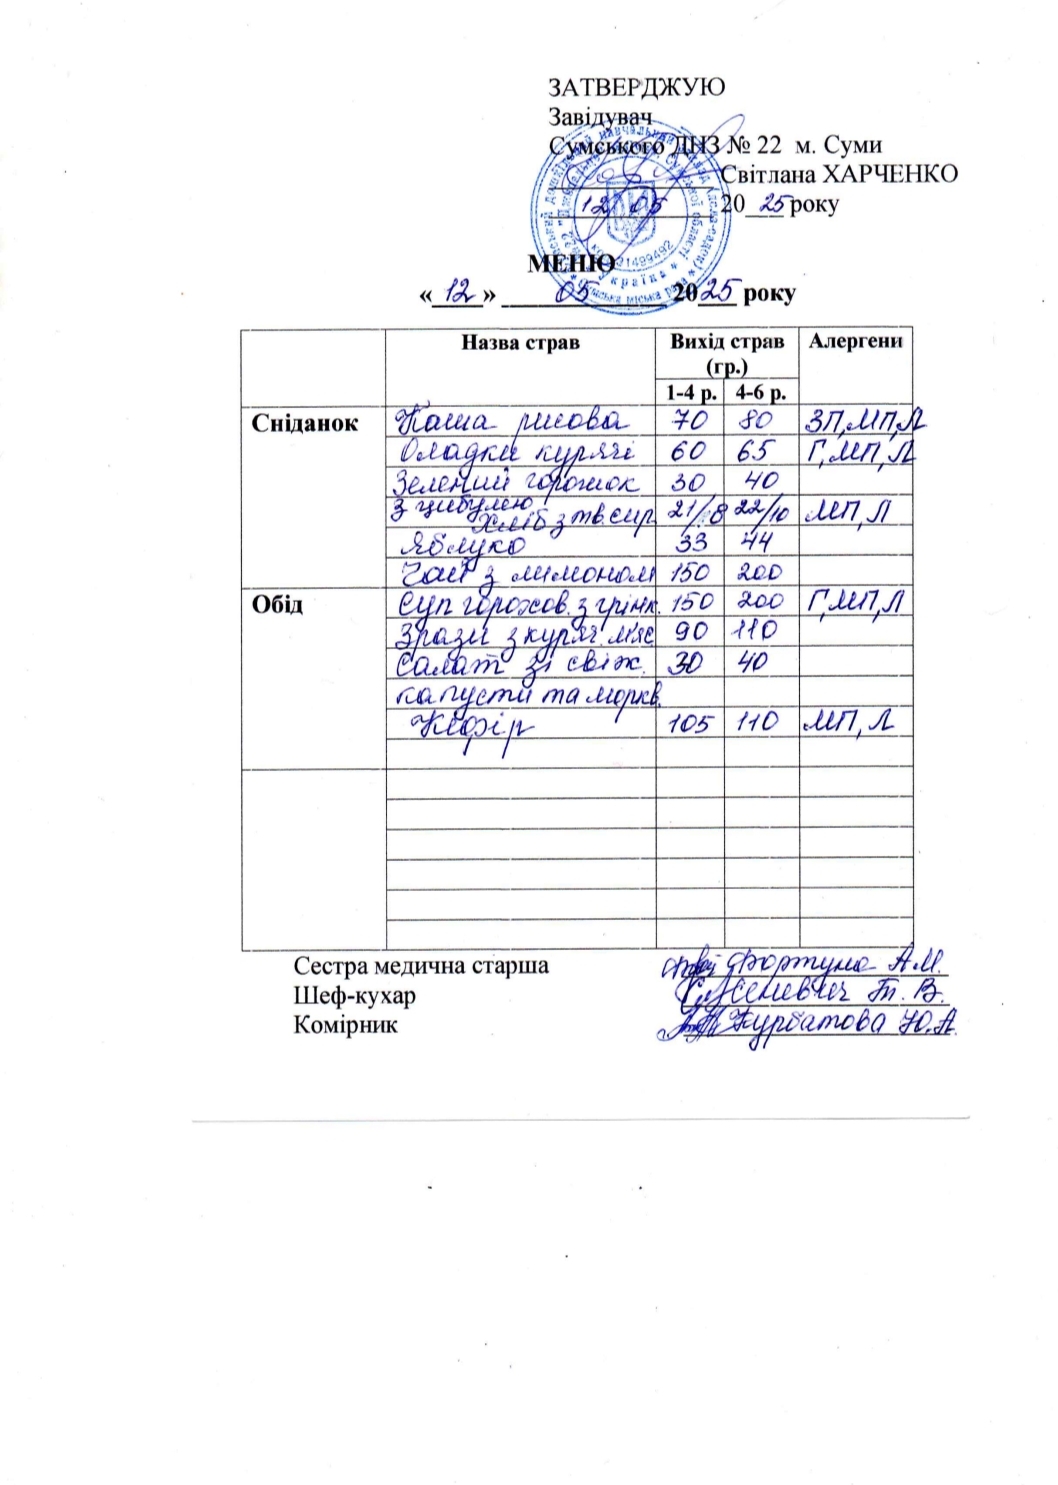 ЗАТВЕРДЖУЮ
Завідувач
Сумського ДНЗ № 22 м. Суми
Світлана ХАРЧЕНКО
12 05 2025 року
МЕНЮ
«12» 05 2025 року
Назва страв Вихід страв (гр.) Алергени
1-4 р. 4-6 р.
Сніданок Каша рисова 70 80 ЗП,МП,Л
Оладки курячі 60 65 Г,МП,Л
Зелений горошок 30 40
з цибулею
Хліб з тв.сир. 21/8 22/10 МП,Л
Яблуко 33 44
Чай з лимоном 150 200
Обід Суп горохов. з грінк. 150 200 Г,МП,Л
Зрази з куряч. м'яс 90 110
Салат зі свіж. 30 40
капусти та моркв.
Кефір 105 110 МП,Л
Сестра медична старша Фортуна А.М.
Шеф-кухар Т.В.
Комірник Курбатова Ю.А.